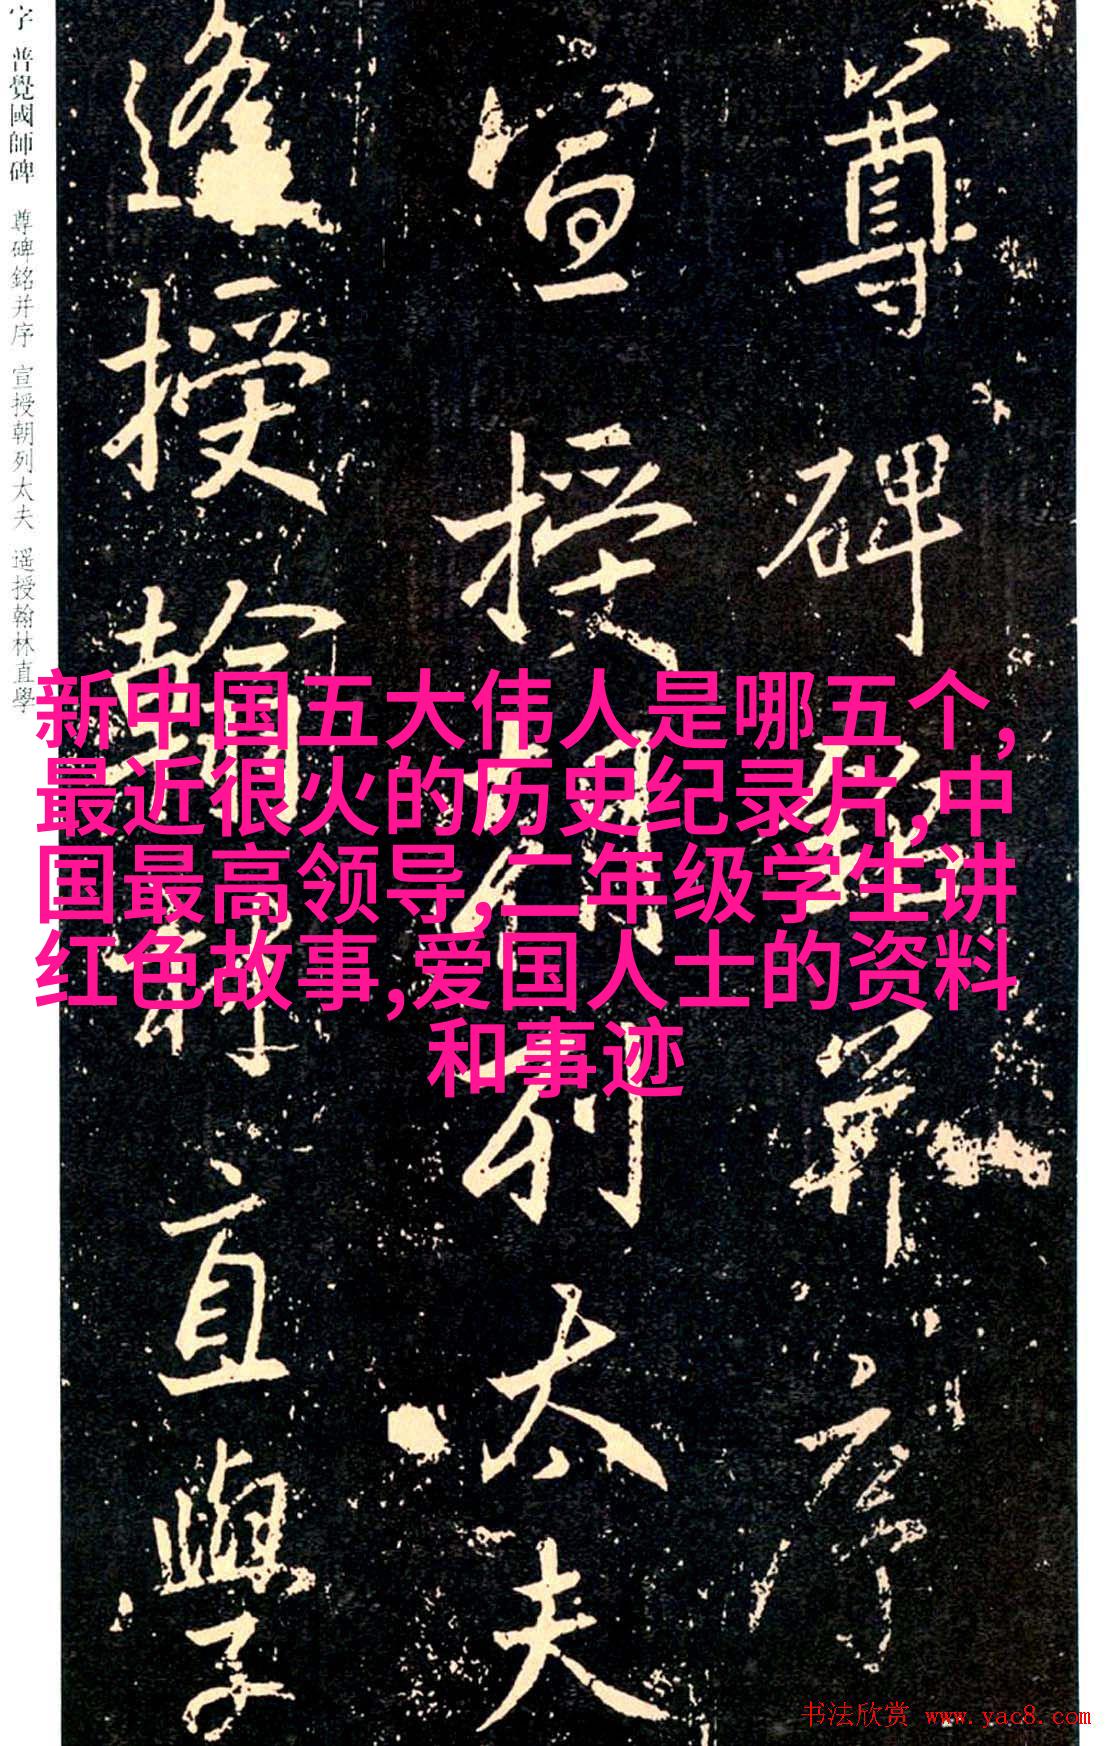 字 普覺國師碑 尊碑銘并序 宣授朝列太夫 遥授翰林直學
尊碑銘并序
宣授朝列太夫
遥授翰林直學
新中国五大伟人是哪五个,
最近很火的历史纪录片,中
国最高领导,二年级学生讲
红色故事,爱国人士的资料
和事迹
书法欣赏 www.yac8.com